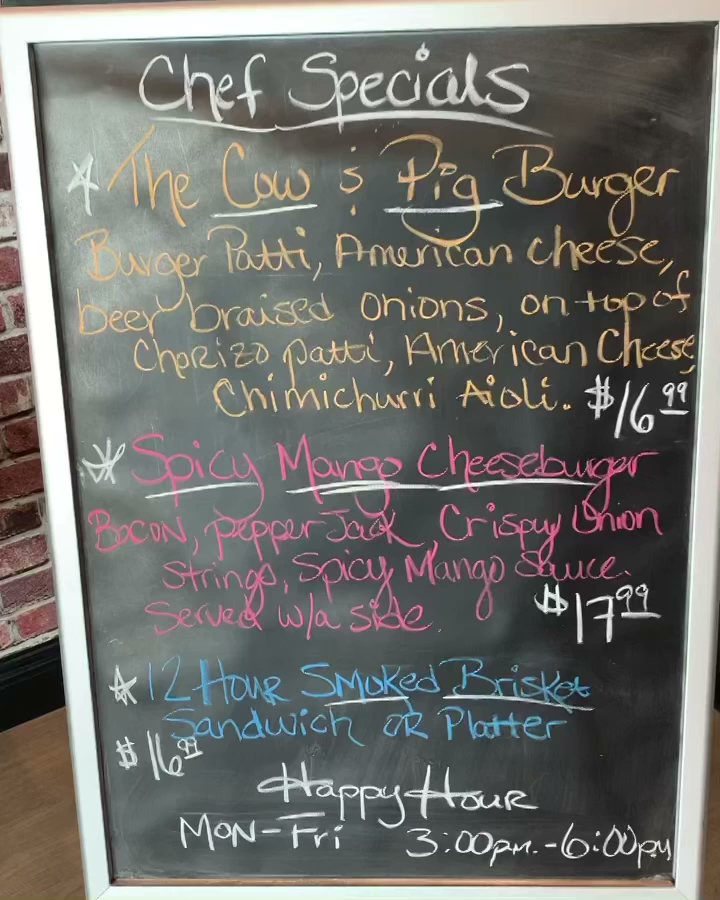 Chef Specials
The Cow & Pig Burger
Burger Patti, American cheese,
beer braised onions, on top of
Chorizo patti, American Cheese,
Chimichurri Aioli. $16.99
Spicy Mango Cheeseburger
Bacon, pepper Jack, Crispy Onion
Strings, Spicy Mango Sauce.
Served w/a side. $17.99
12 Hour Smoked Brisket
Sandwich OR Platter
$16.99
Happy Hour
MON-Fri 3:00pm.-6:00pm